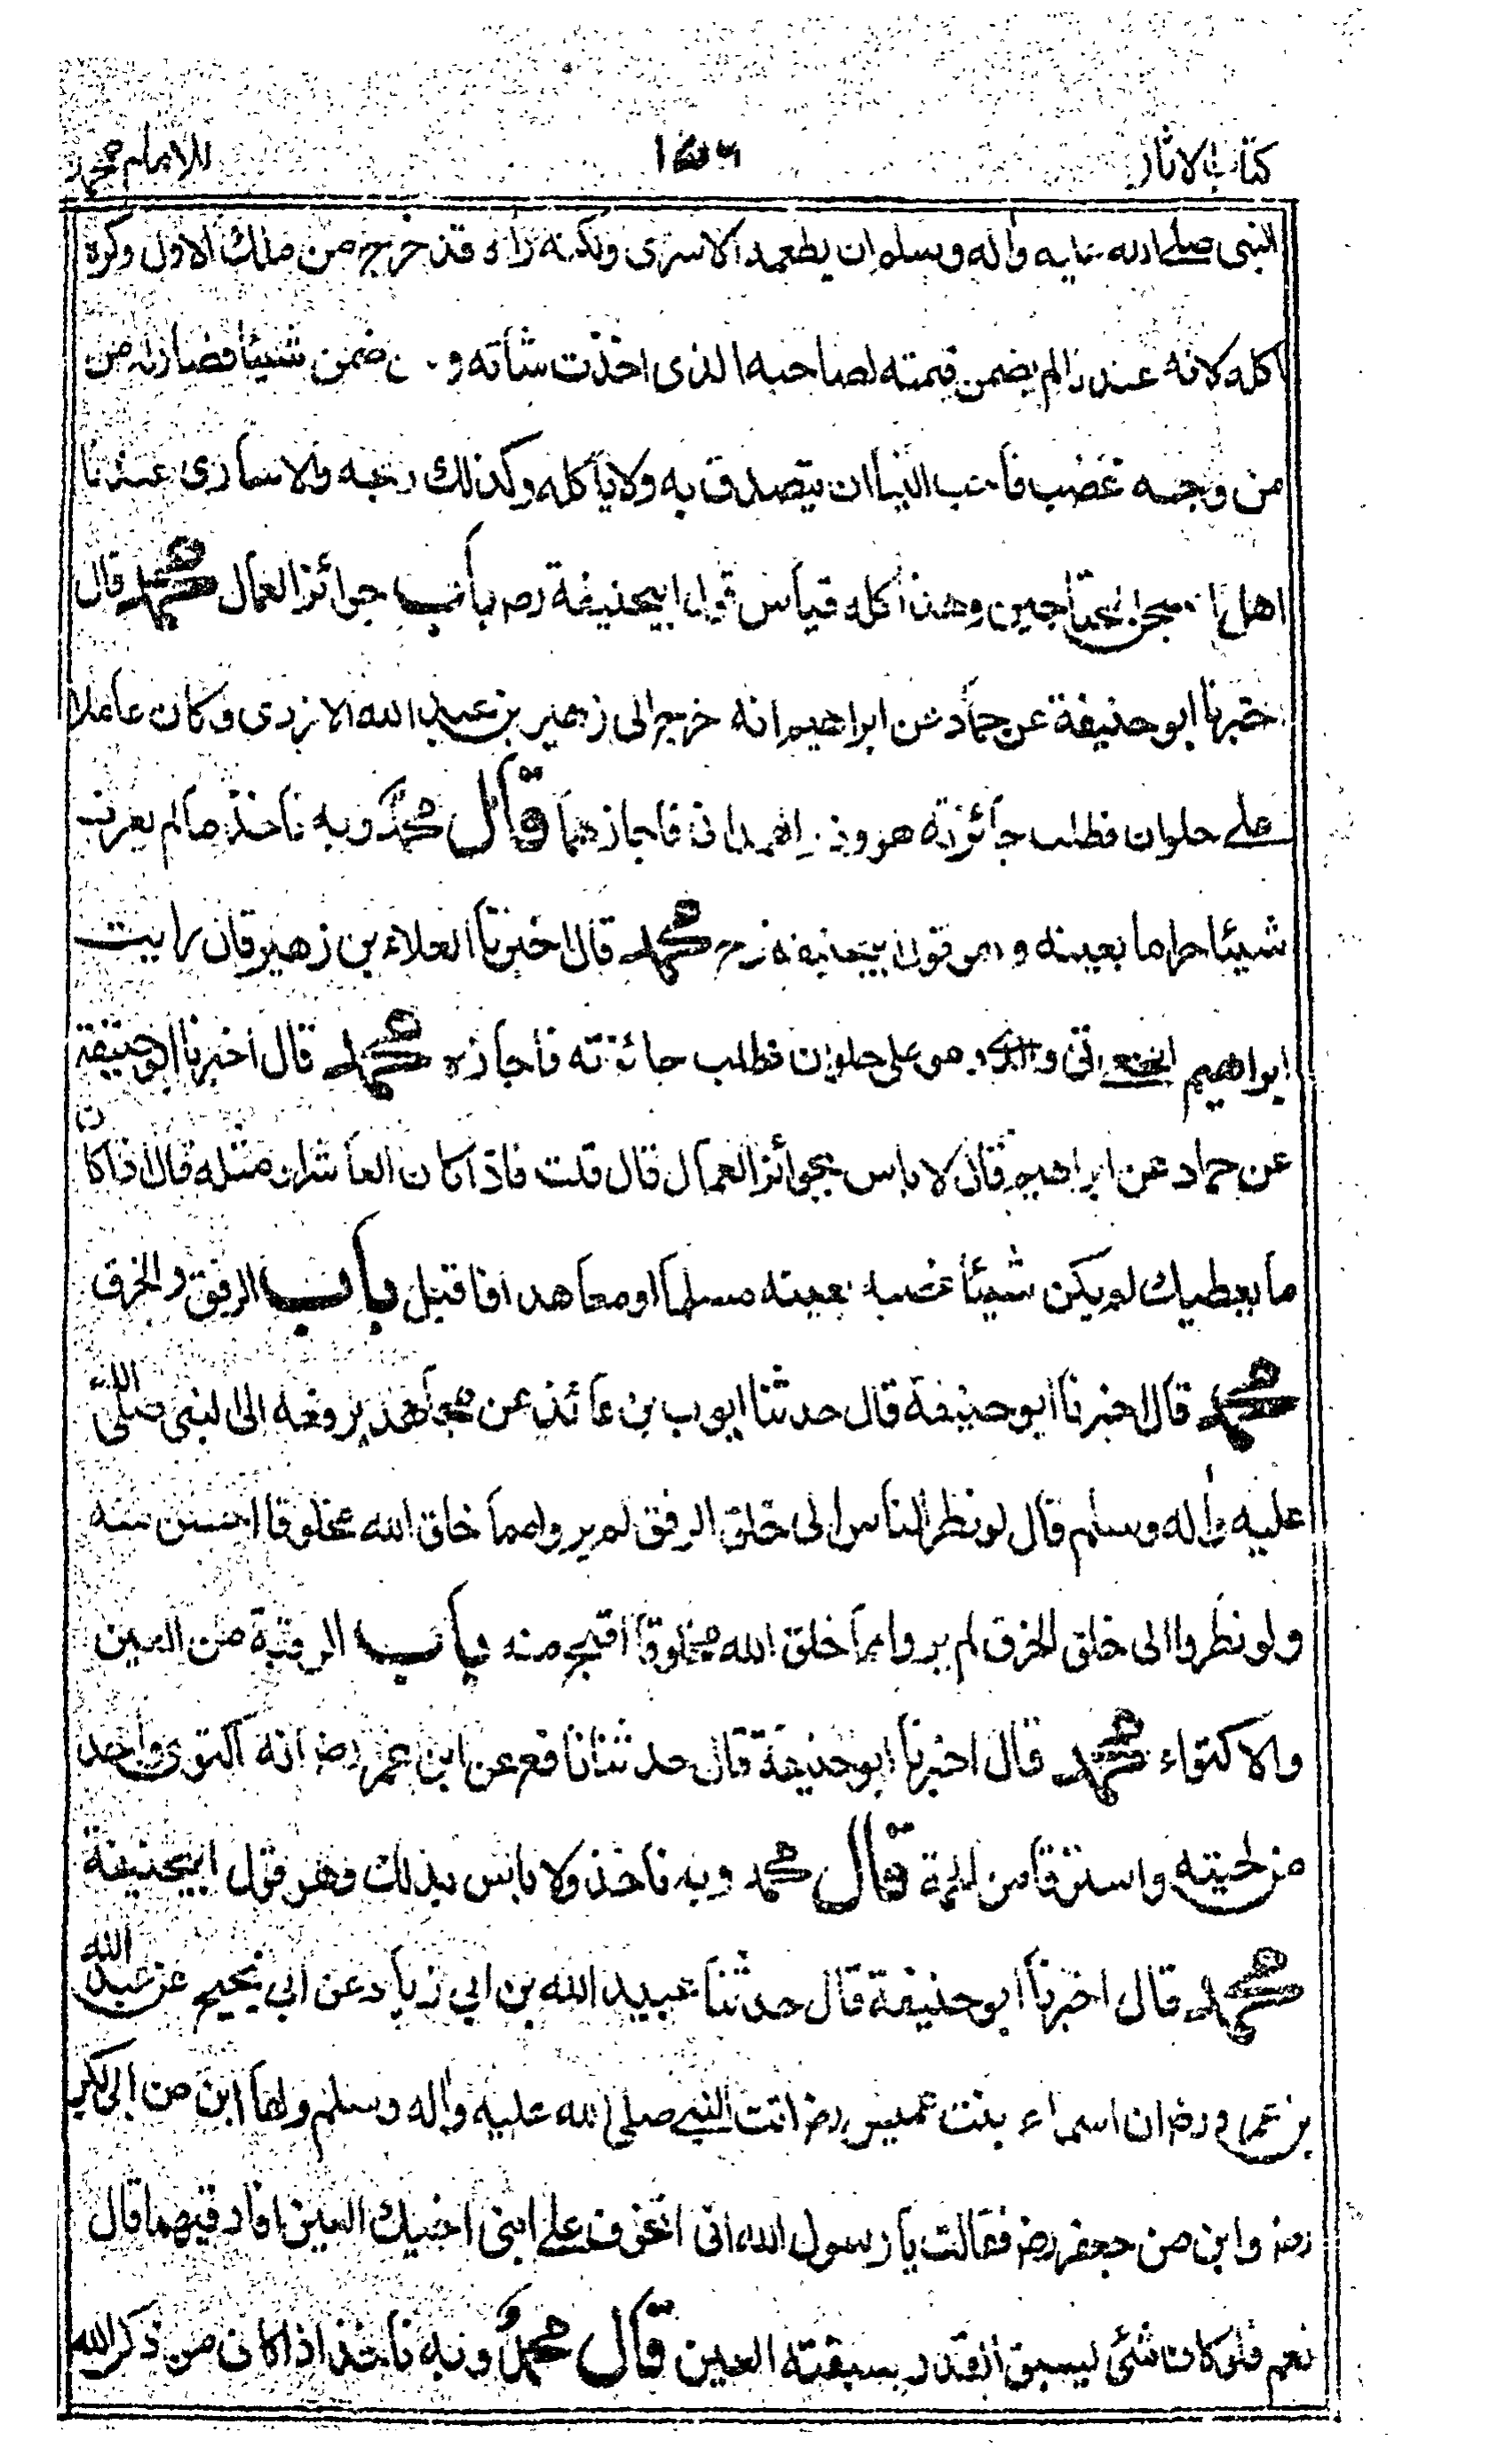 كتاب الاثار ١٥٦ للامام محمد
النبي صلے الله عليه واٰله وسلم ان يطعمه الاسرى ولكنه راٰه قد خرج من ملك الاول وكره
اكله لانه عندنا لم يضمن قيمته لصاحبه الذى اخذت شاته و ضمن شيئا فصار له من
من وجه غصب فاحب الينا ان يتصدق به ولا ياكله وكذلك ربحه والاسارى عندنا
اهل السجن المحتاجين وهذا كله قياس قول ابيحنيفة رح باب جوائز العمال محمد قال
اخبرنا ابو حنيفة عن حماد عن ابراهيم انه خرج الى زهير بن عبد الله الازدى وكان عاملا
علے حلوان فطلب جائزته هو وذر الهمدانى فاجازهما قال محمد وبه ناخذ مالم يعرف
شيئا حراما بعينه وهو قول ابيحنيفة رح محمد قال اخبرنا العلاء بن زهير قال رايت
ابراهيم النخعى اتى والدى وهو على حلوان فطلب جائزته فاجازه محمد قال اخبرنا ابوحنيفة
عن حماد عن ابراهيم قال لا باس بجوائز العمال قال قلت فاذا كان العاشر او مثله قال اذا كان
ما يعطيك لم يكن شيئا غصبه بعينه مسلما او معاهدا فاقبل باب الرفق والخرق
محمد قال اخبرنا ابو حنيفة قال حدثنا ايوب بن عائذ عن مجاهد يرفعه الى النبى صلى الله
عليه واٰله وسلم قال لو نظر الناس الى خلق الرفق لم يروا مما خلق الله مخلوقا احسن منه
ولو نظروا الى خلق الخرق لم يروا مما خلق الله مخلوقا اقبح منه باب الرقية من العين
والاكتواء محمد قال اخبرنا ابو حنيفة قال حدثنا نافع عن ابن عمر رض انه اكتوى واخذ
من لحيته واسترقا من الحمة قال محمد وبه ناخذ ولا باس بذلك وهو قول ابيحنيفة
محمد قال اخبرنا ابو حنيفة قال حدثنا عبيد الله بن ابي زياد عن ابي نجيح عن عبد الله
بن عمرو رض ان اسماء بنت عميس رض اتت النبے صلى الله عليه واٰله وسلم ولها ابن من ابى بكر
رض وابن من جعفر رض فقالت يا رسول الله انى اتخوف علے ابنى اخيك العين افارقيهما قال
نعم فلو كان شئى ليسبق القدر سبقته العين قال محمد وبه ناخذ اذا كان من ذكر الله